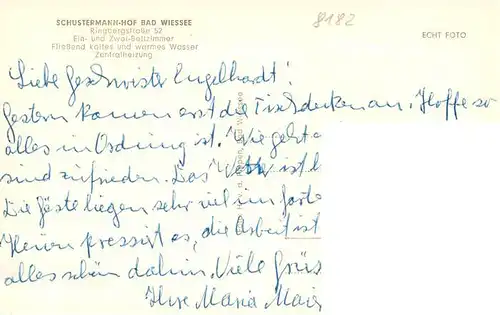 SCHUSTERMANN-HOF BAD WIESSEE
Ringbergstraße 52
Ein- und Zwei-Bettzimmer
Fließend kaltes und warmes Wasser
Zentralheizung
8182
ECHT FOTO
Liebe Geschwister Engelhardt!
Gestern kamen erst die Tischdecken an. Hoffe so
alles in Ordnung ist. Wie geht e
sind zufrieden. Das Wetter ist
Die Gäste liegen sehr viel im Garte
pressirt es, die Arbeit ist
alles schön dahin. Viele Grüs
Ihre Maria Maie